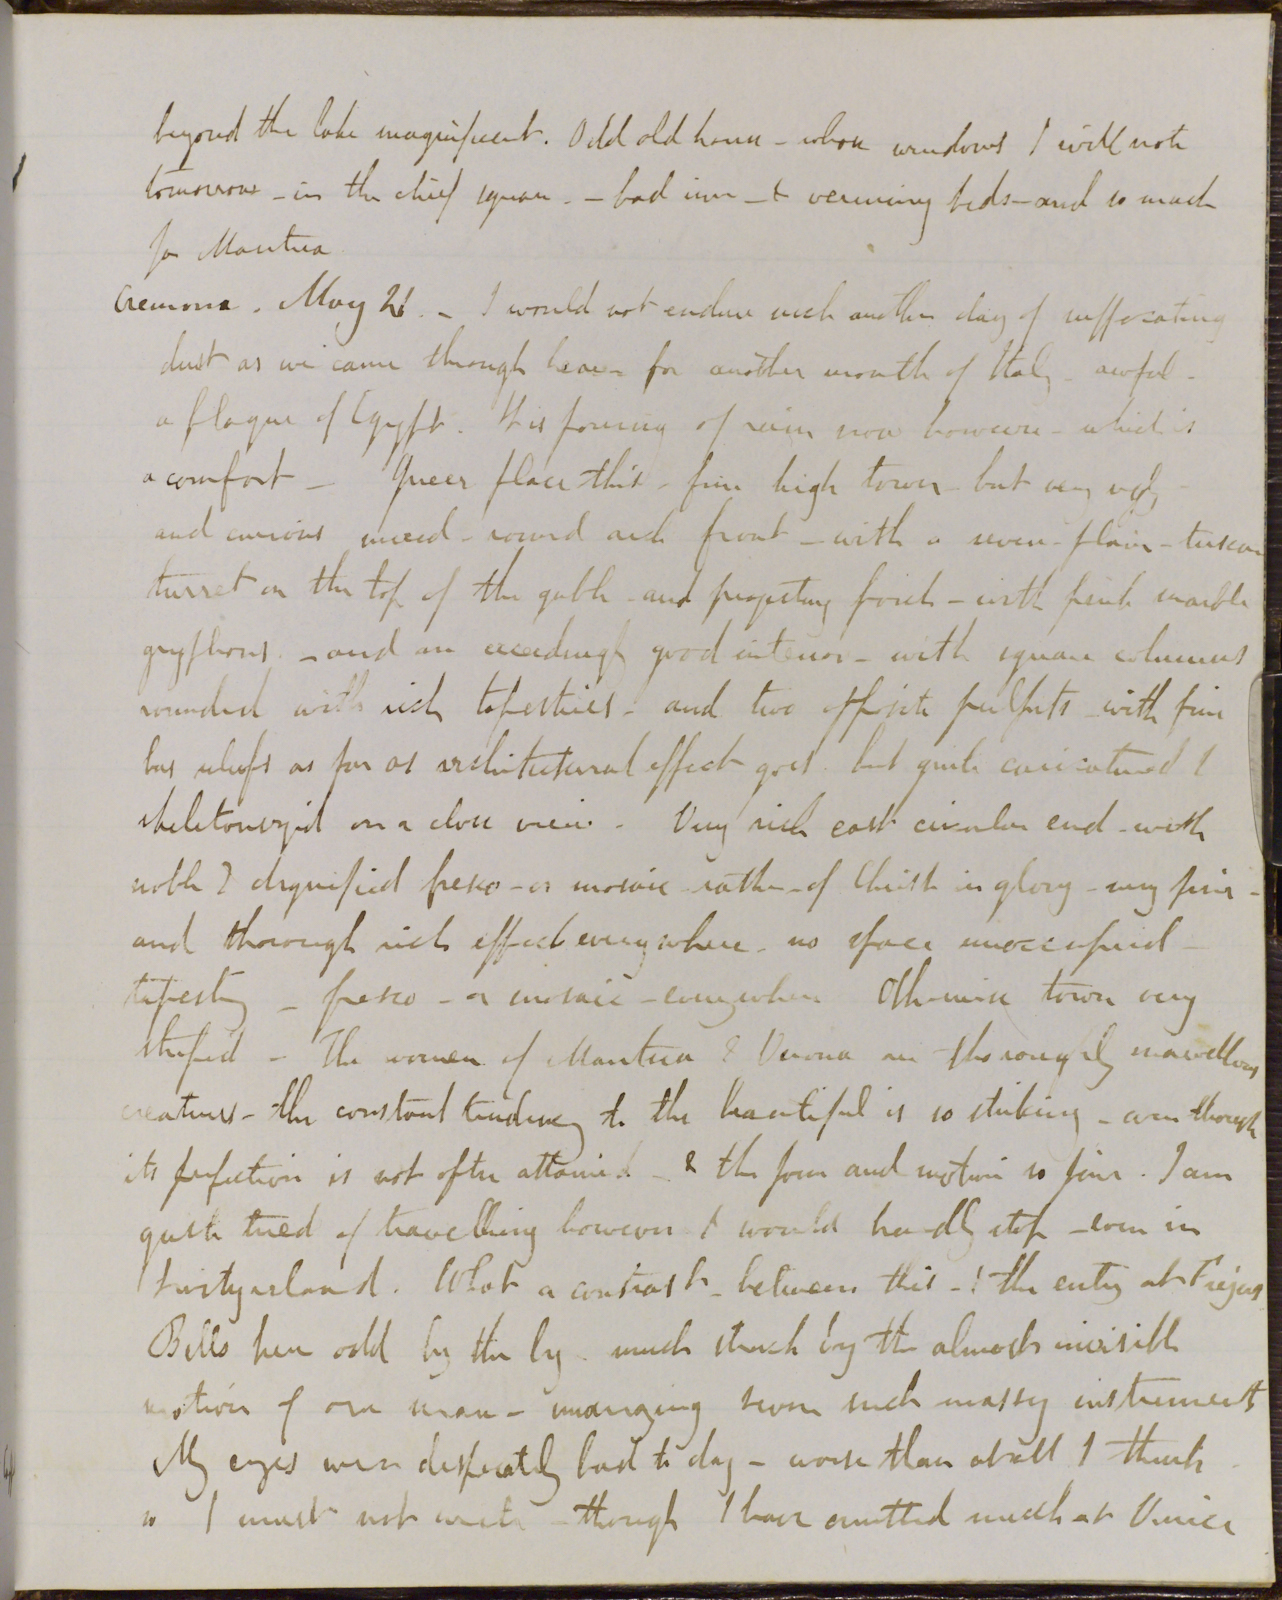 beyond the lake magnificent. Odd old house - whose windows I will note
tomorrow - in the chief square. - bad inn - & verminy beds - and so much
for Mantua
Cremona. May 21. - I would not endure such another day of suffocating
dust as we came through here for another month of Italy - awful -
a plague of Egypt. It is pouring of rain now however - which is
a comfort - Queer place this - fine high tower - but very ugly -
and curious - round arch front - with a plain - tuscan
turret on the top of the gable - and projecting porch - with pink marble
gryphons. - and an exceedingly good interior - with square columns
rounded with rich tapestries - and two opposite pulpits - with fine
bas reliefs as far as architectural effect goes. but quite caricatured &
skeletonized on a close view - Very rich east circular end - with
noble & dignified fresco - or mosaic rather - of Christ in glory - very fine -
and thorough rich effect everywhere - no space unoccupied -
tapestry - fresco - or mosaic - everywhere Otherwise town very
stupid - The women of Mantua & Verona are thoroughly marvellous
creatures - the constant tendency to the beautiful is so striking - even though
its perfection is not often attained - & the form and motion so fine. I am
quite tired of travelling however & would hardly stop - even in
Switzerland. What a contrast - between this - & the entry at Frejus
Bells here odd by the by - much struck by the almost invisible
motion of one man - managing seven such massy instruments
My eyes were desperately bad to day - worse than at all I think
so I must not write - though I have omitted much at Venice